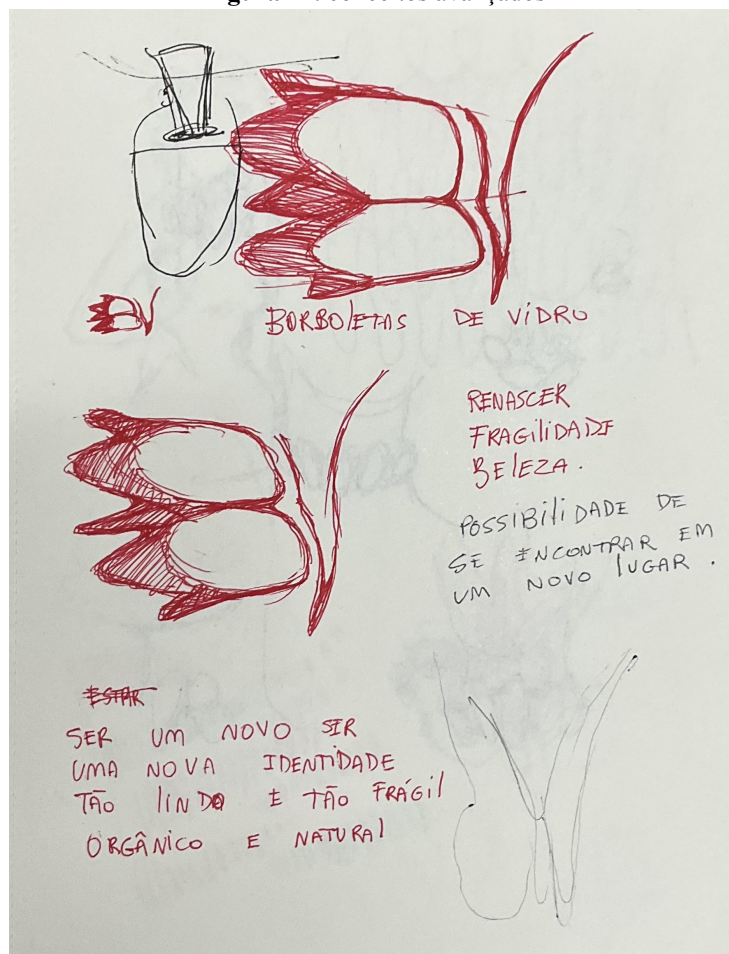 BORBOLETAS DE VIDRO
RENASCER
FRAGILIDADE
BELEZA.
POSSIBILIDADE DE
SE ENCONTRAR EM
UM NOVO LUGAR.
ESTAR
SER UM NOVO SER
UMA NOVA IDENTIDADE
TÃO LINDO E TÃO FRÁGIL
ORGÂNICO E NATURAL